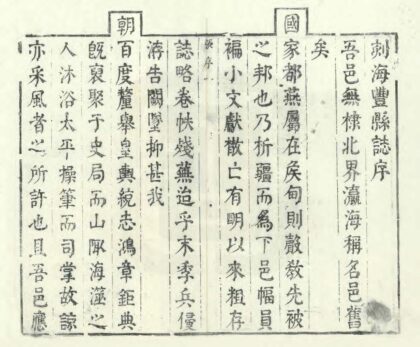 刻海豐縣誌序
吾邑無棣北界瀛海稱名邑舊
矣
國家都燕屬在矦甸則聲敎先被
之邦也乃析疆而為下邑幅員
褊小文獻散亡有明以來粗存
序一
誌略卷帙殘蕪迨乎末季兵
洊告闕墜抑甚我
朝百度釐舉皇輿統志鴻章鉅典
旣裒聚于史局而山陬海澨之
人沐浴太平操筆而司掌故諒
亦采風者之所許也且吾邑應